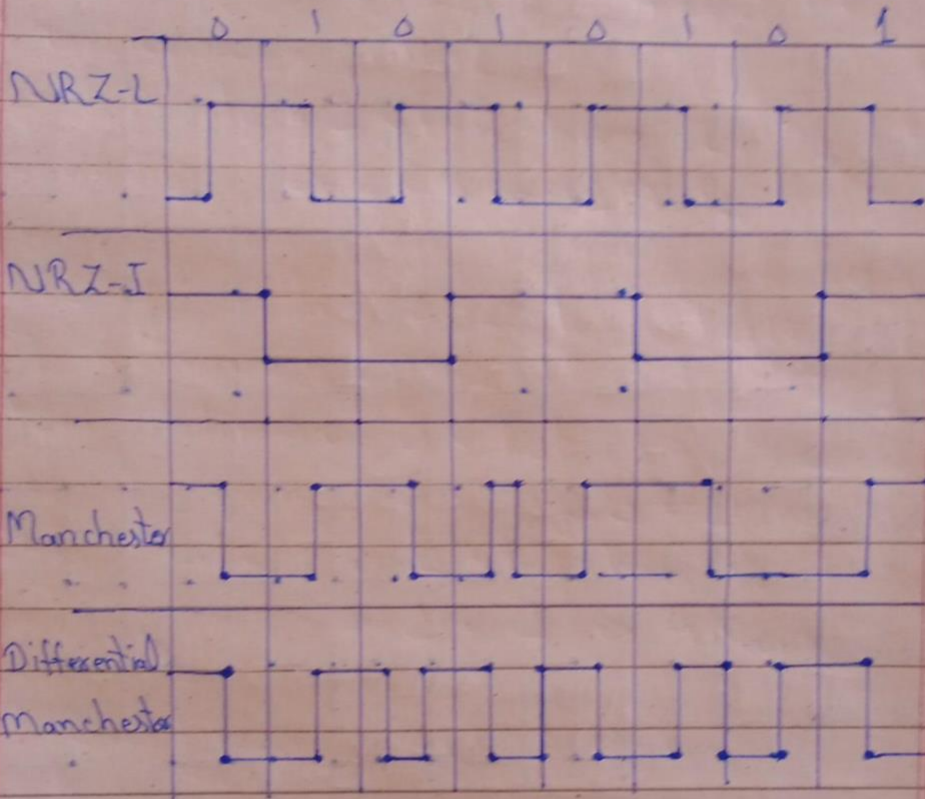 0 1 0 1 0 1 0 1
NRZ-L
NRZ-I
Manchester
Differential
Manchester